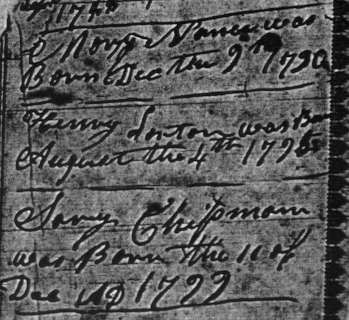 174
was
Born Dec the 9th 1790
Henry Sexton was Born
August the 4th 1796
Chipman
was Born the 11 of
Dec AD 1799